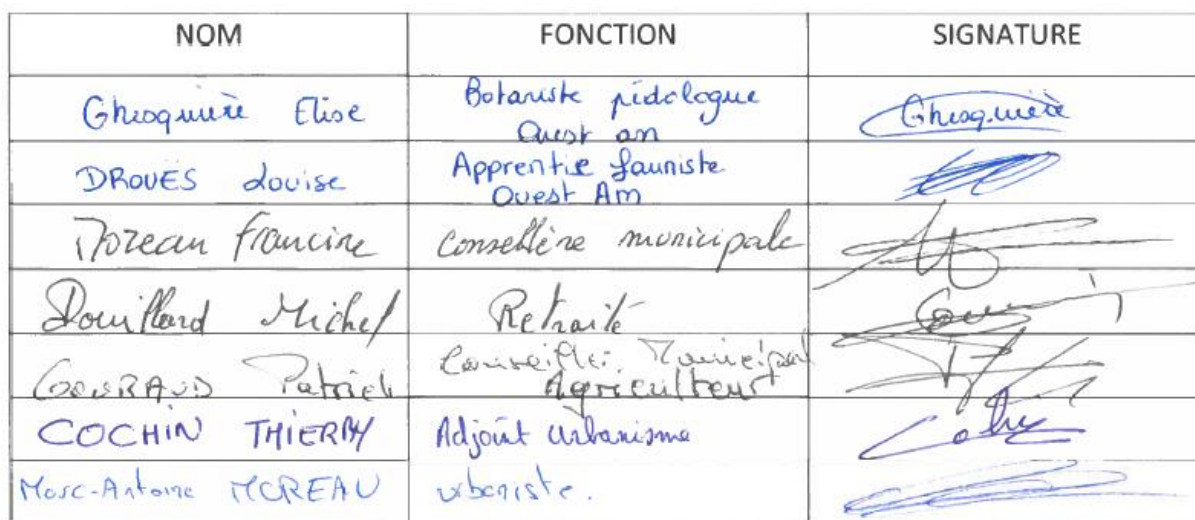 NOM FONCTION SIGNATURE
Ghesquière Elise Botaniste pédologue Ouest am Ghesquière
DROUES Louise Apprentie fauniste Ouest Am
Moreau Francine Conseillère municipale
Douillard Michel Retraité
GOURAUD Patrick Conseiller Municipal Agriculteur
COCHIN THIERRY Adjoint urbanisme
Marc-Antoine MOREAU urbaniste.